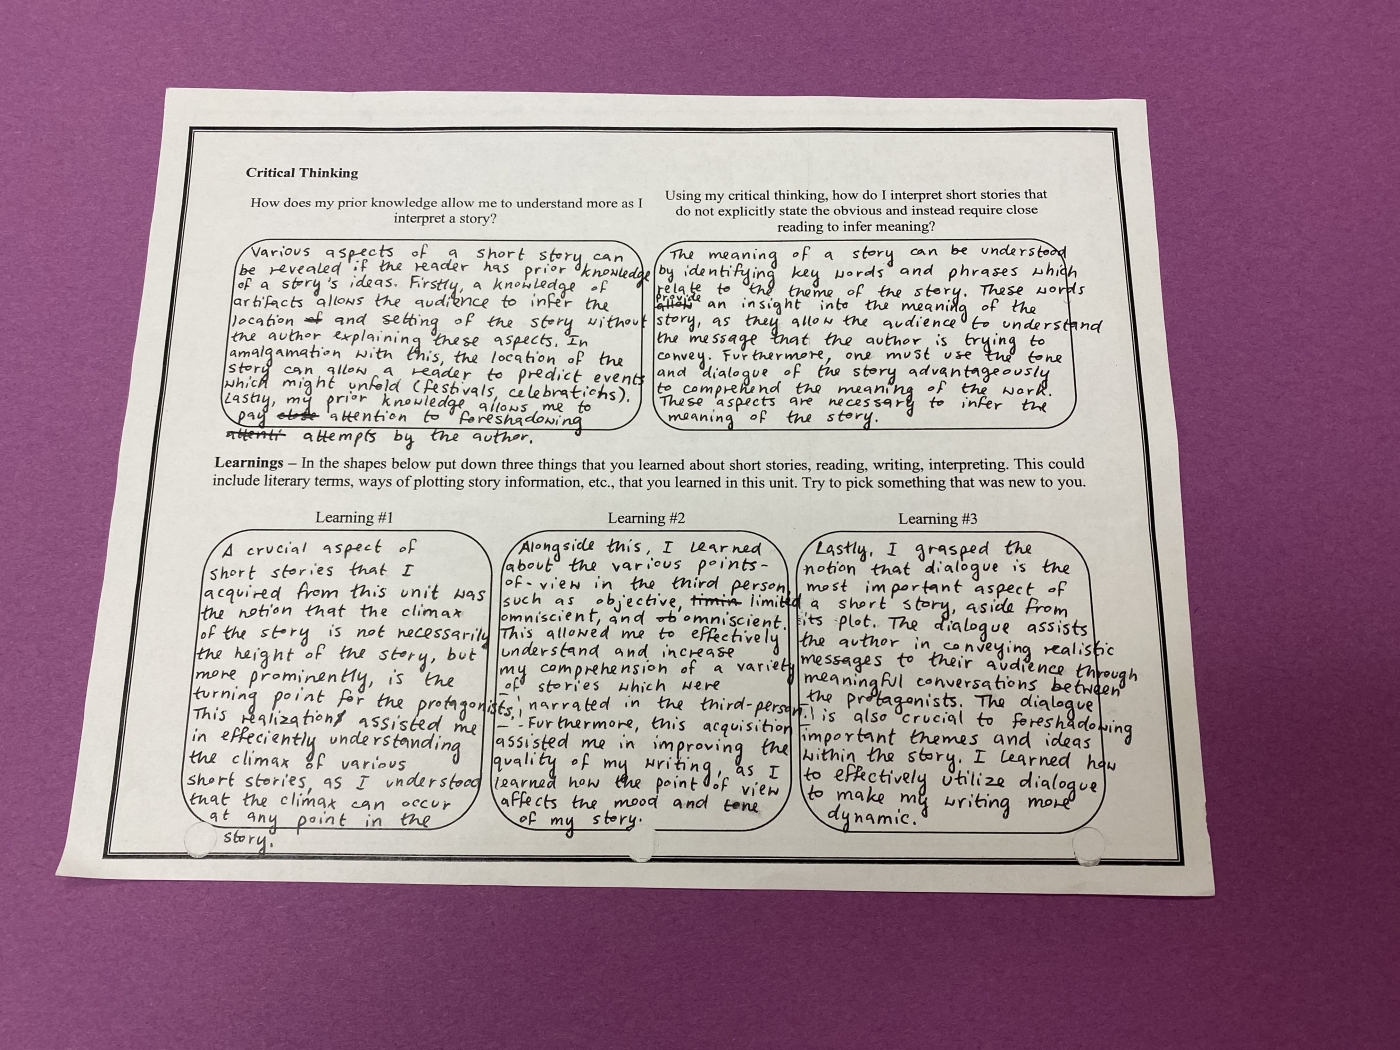 Critical Thinking
How does my prior knowledge allow me to understand more as I
interpret a story?
Various aspects of a short story can
be revealed if the reader has prior knowledge
of a story's ideas. Firstly, a knowledge of
artifacts allows the audience to infer the
location of and setting of the story without
the author explaining these aspects. In
amalgamation with this, the location of the
story can allow a reader to predict events
which might unfold (festivals, celebrations).
Lastly, my prior knowledge allows me to
pay close attention to foreshadowing
attenti attempts by the author.
Using my critical thinking, how do I interpret short stories that
do not explicitly state the obvious and instead require close
reading to infer meaning?
The meaning of a story can be understood
by identifying key words and phrases which
relate to the theme of the story. These words
provide
allow an insight into the meaning of the
story, as they allow the audience to understand
the message that the author is trying to
convey. Furthermore, one must use the tone
and dialogue of the story advantageously
to comprehend the meaning of the work.
These aspects are necessary to infer the
meaning of the story.
Learnings – In the shapes below put down three things that you learned about short stories, reading, writing, interpreting. This could
include literary terms, ways of plotting story information, etc., that you learned in this unit. Try to pick something that was new to you.
Learning #1
A crucial aspect of
short stories that I
acquired from this unit was
the notion that the climax
of the story is not necessarily
the height of the story, but
more prominently, is the
turning point for the protagonists.
This realization assisted me
in effeciently understanding
the climax of various
short stories, as I understood
that the climax can occur
at any point in the
story.
Learning #2
Alongside this, I learned
about the various points-
of-view in the third person,
such as objective, limited
omniscient, and omniscient.
This allowed me to effectively
understand and increase
my comprehension of a variety
of stories which were
narrated in the third-person.
Furthermore, this acquisition
assisted me in improving the
quality of my writing, as I
learned how the point of view
affects the mood and tone
of my story.
Learning #3
Lastly, I grasped the
notion that dialogue is the
most important aspect of
a short story, aside from
its plot. The dialogue assists
the author in conveying realistic
messages to their audience through
meaningful conversations between
the protagonists. The dialogue
is also crucial to foreshadowing
important themes and ideas
within the story. I learned how
to effectively utilize dialogue
to make my writing more
dynamic.